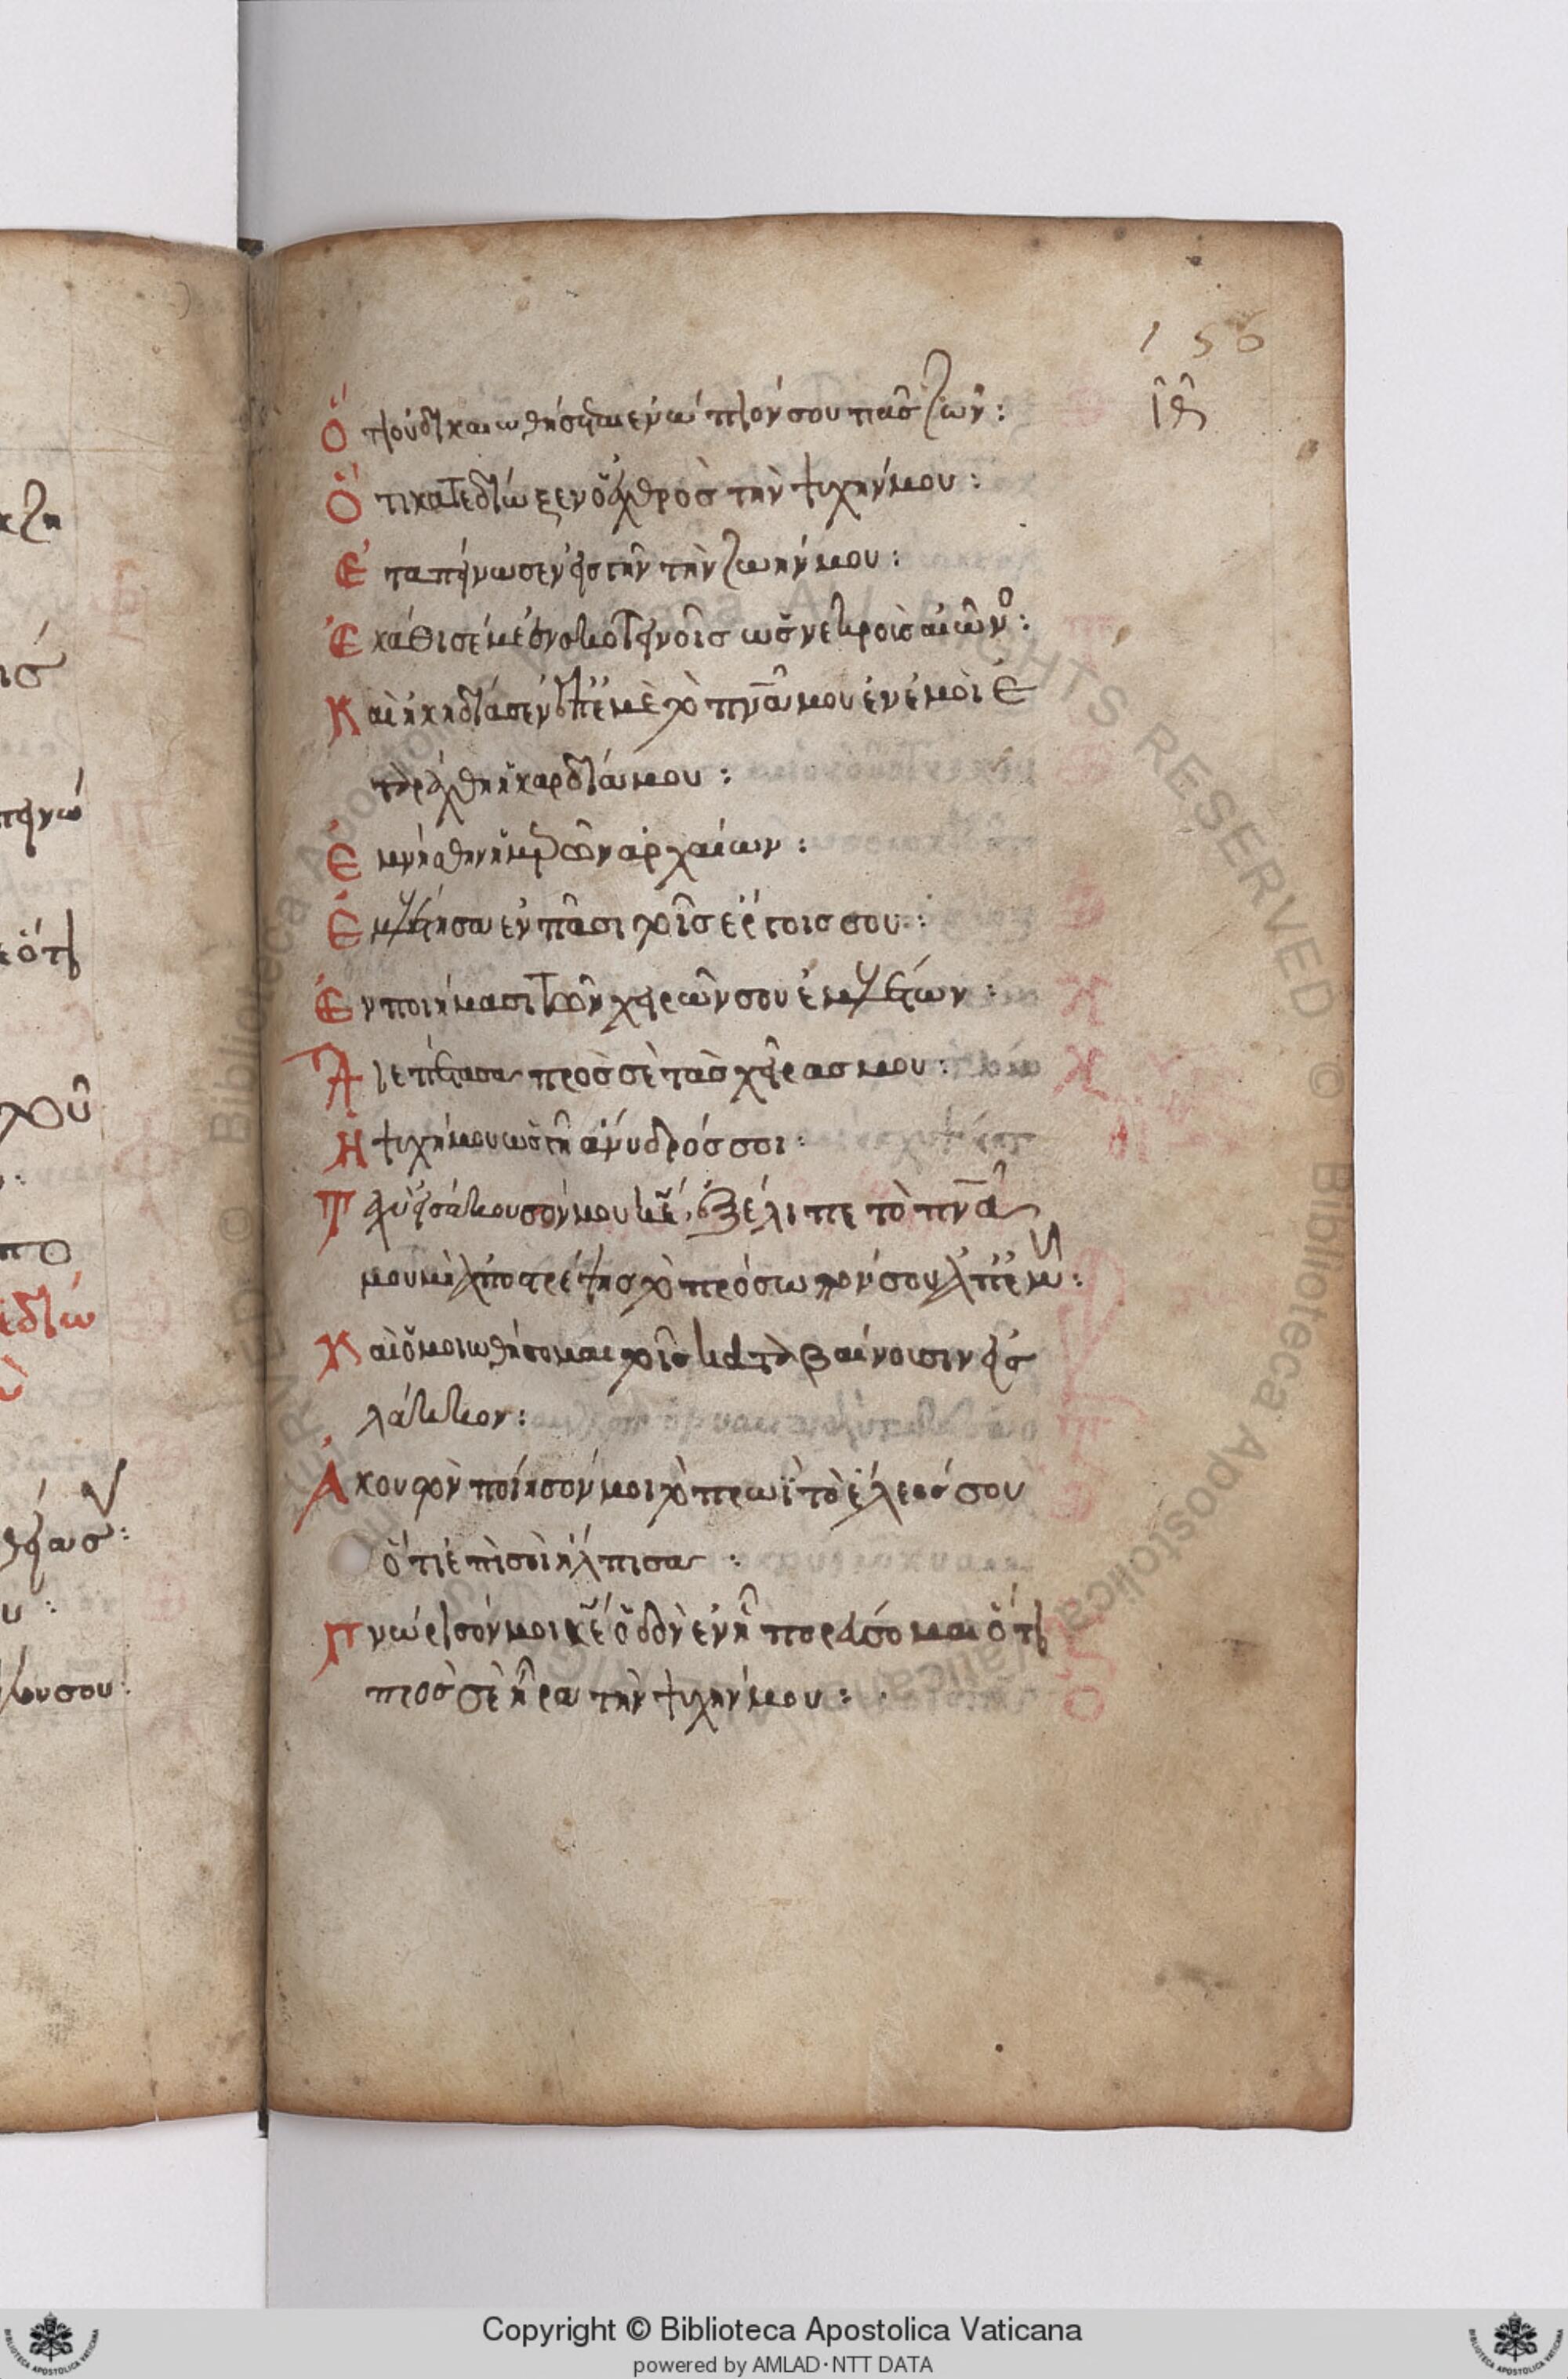 156
ιθ
Ὅτι οὐ δικαιωθήσεται ἐνώπιόν σου πᾶς ζῶν:
Ὅτι κατεδίωξεν ὁ ἐχθρὸς τὴν ψυχήν μου:
Ἐταπείνωσεν εἰς γῆν τὴν ζωήν μου:
Ἐκάθισέ με ἐν σκοτεινοῖς ὡς νεκροὺς αἰῶνο:
Καὶ ἠκηδίασεν ἐπ' ἐμὲ τὸ πνα μου ἐν ἐμοὶ ἐ
ταράχθη ἡ καρδία μου:
Ἐμνήσθην ἡμερῶν ἀρχαίων:
Ἐμελέτησα ἐν πᾶσι τοῖς ἔργοις σου:
Ἐν ποιήμασι τῶν χειρῶν σου ἐμελέτων:
Διεπέτασα πρὸς σὲ τὰς χεῖρας μου:
Ἡ ψυχή μου ὡς γῆ ἄνυδρός σοι:
Ταχὺ εἰσάκουσόν μου κε, ἐξέλιπε τὸ πνα
μου μὴ ἀποστρέψης τὸ πρόσωπόν σου ἀπ' ἐμοῦ:
Καὶ ὁμοιωθήσομαι τοῖς καταβαίνουσιν εἰς
λάκκον:
Ἀκουστὸν ποίησόν μοι τὸ πρωῒ τὸ ἔλεός σου
ὅτι ἐπὶ σοὶ ἤλπισα:
Γνώρισόν μοι κε ὁδὸν ἐν ᾗ πορεύσομαι ὅτι
πρὸς σὲ ἦρα τὴν ψυχήν μου:
Copyright © Biblioteca Apostolica Vaticana
powered by AMLAD·NTT DATA